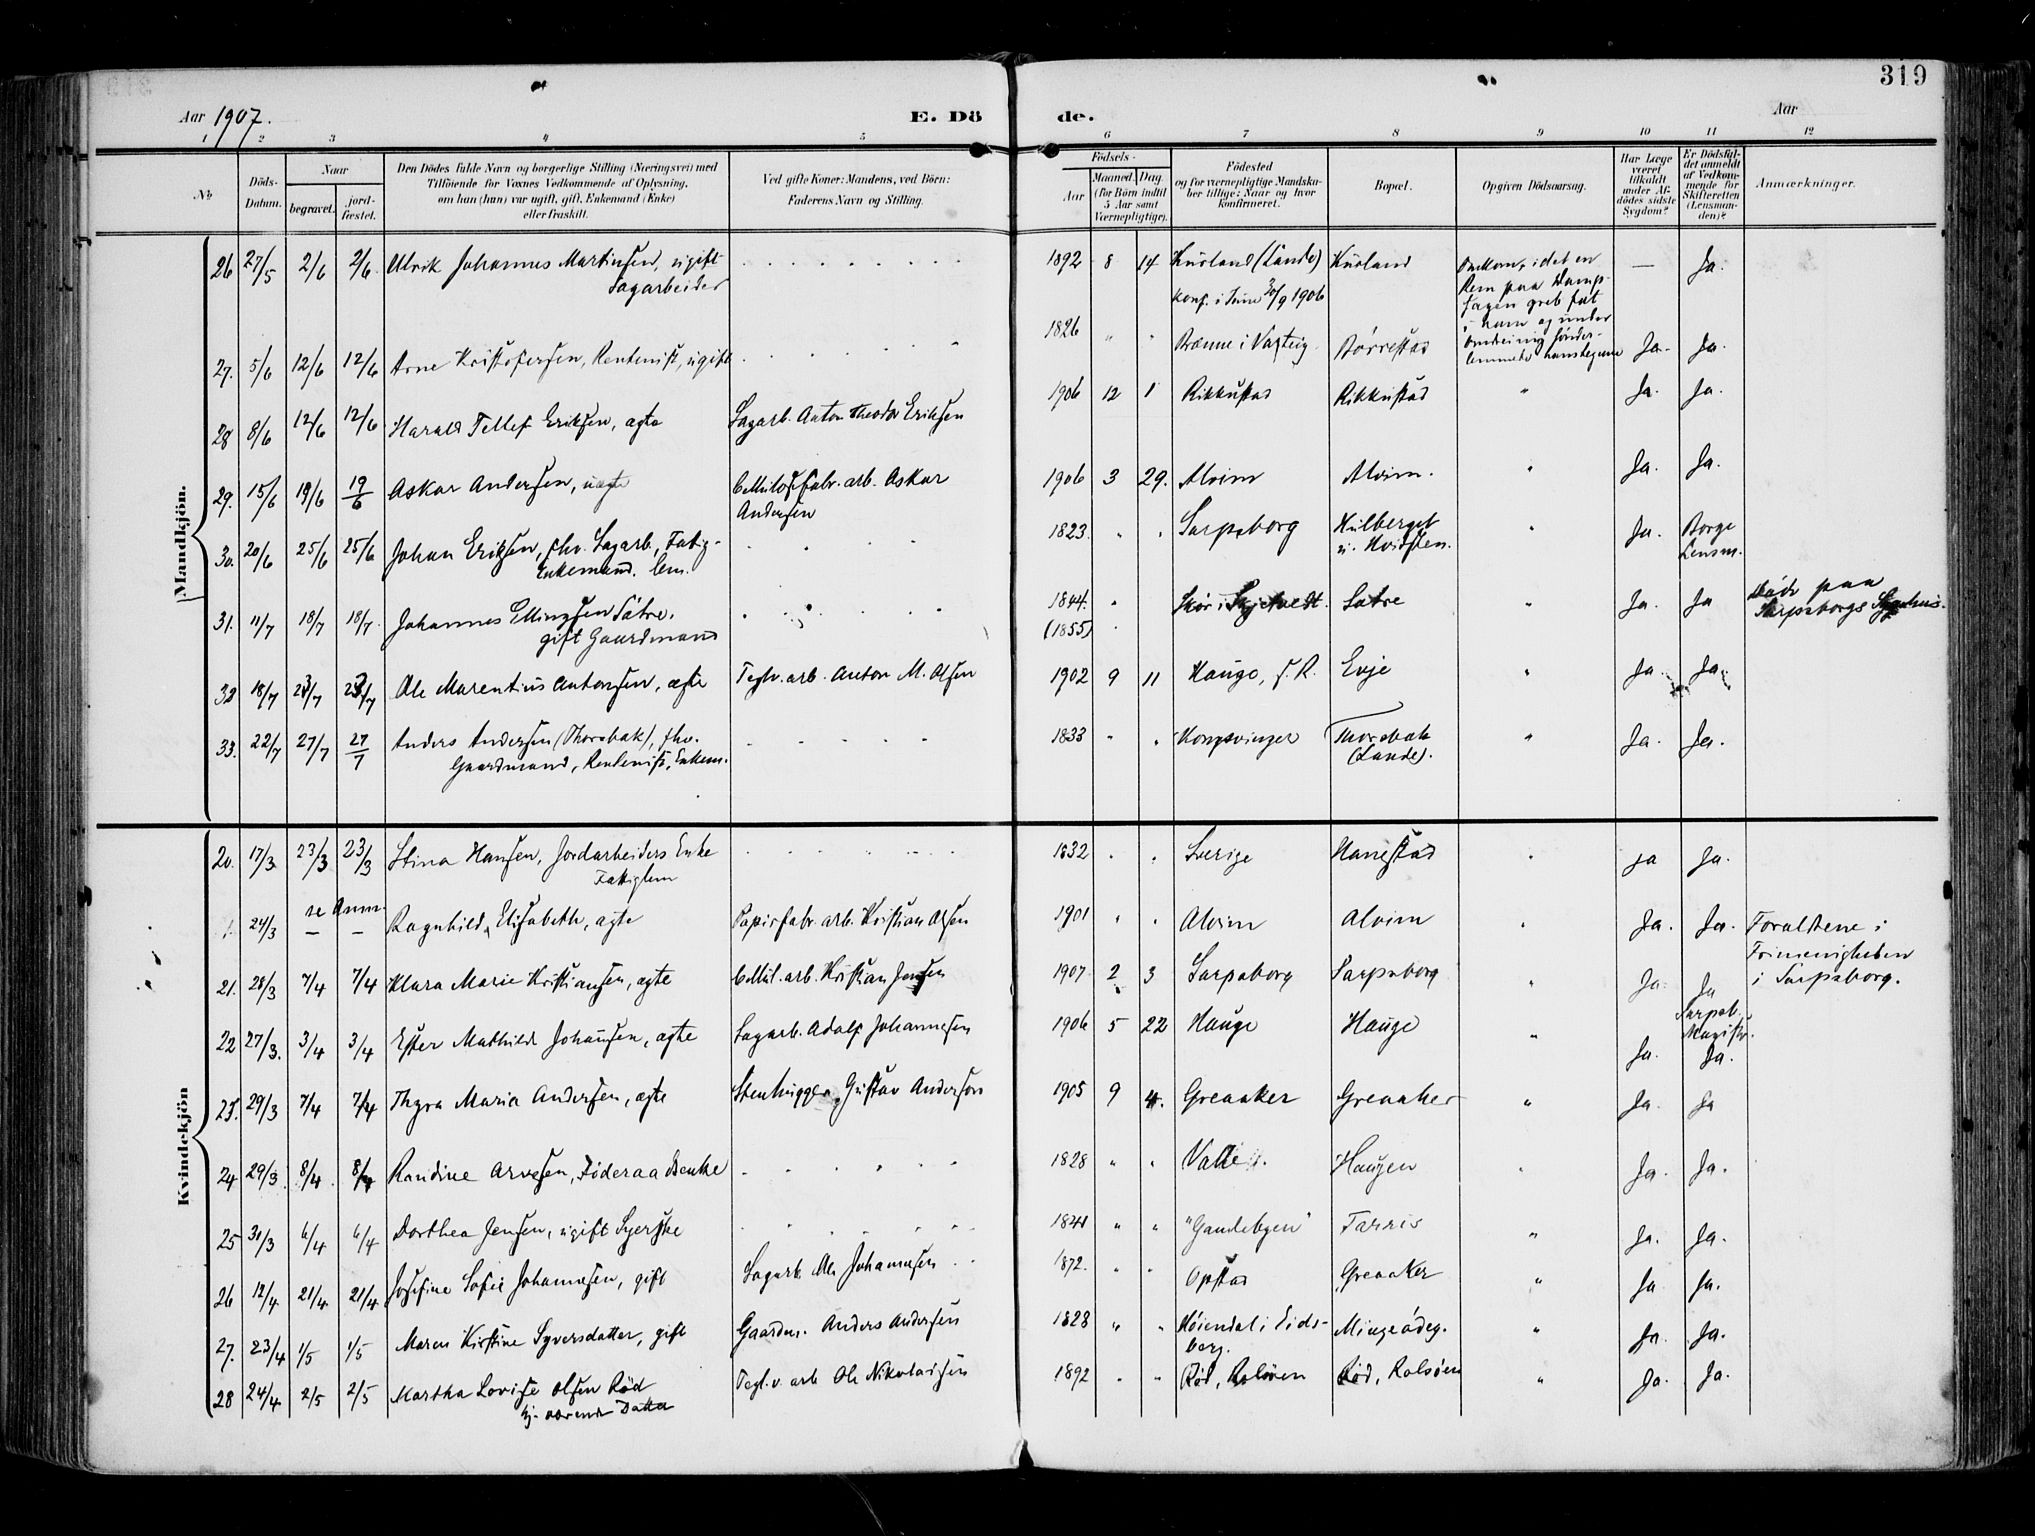 319
Aar 1907.
E. Döde.
Aar
1 2 3 4 5 6 7 8 9 10 11 12
No
Döds-Datum.
Naar begravet. jord-fæstet.
Den Dödes fulde Navn og borgerlige Stilling (Næringsvei) med
Tilföiende for Voxnes Vedkommende af Oplysning,
om han (hun) var ugift, gift, Enkemand (Enke)
eller fraskilt.
Ved gifte Koner: Mandens, ved Börn:
Faderens Navn og Stilling.
Födsels-
Aar Maaned. Dag.
(for Börn indtil 5 Aar samt Værnepligtige).
Födested
og for værnepligtige Mandska-
ber tillige: Naar og hvor
konfirmeret.
Bopæl.
Opgiven Dödsaarsag.
Har Læge været tilkaldt under Af-dödes sidste Sygdom?
Er Dödsfal-det anmeldt af Vedkom-mende for Skifteretten (Lensman-den)?
Anmærkninger.
Mandkjön.
26 27/5 2/6 2/6 Ulrik Johannes Martinsen, ugift 1892 8 14 Kusland (Lande) Kusland Omkom, idet en — Ja.
Sagarbeider Konf. i Tune 30/9 1906 Rem paa Damp-
sagen greb fat
i ham og under
omdreining sønder-
lemmede hans legeme
27. 5/6 12/6 12/6 Arne Kristofersen, Rentenist, ugift 1826 " " Børrestad Ja. Ja.
28 8/6 12/6 12/6 Harald Tellef Eriksen, ægte Sagarb. Anton Theodor Eriksen 1906 12 1 Rikkustad Rikkustad " Ja. Ja.
29. 15/6 19/6 19/6 Askar Andersen, uægte Cellulosefabr. arb. Askar 1906 3 29. Alvim Alvim. " Ja. Ja.
Andersen
30. 20/6 25/6 25/6 Johan Eriksen, fhv. Sagarb., Fattig- 1823. " " Sarpsborg Hulberget " Ja. Borge
Enkemand. lem. u. Hvidsten. Lensm.
31. 11/7 18/7 18/7. Johannes Ellingsen Sätre. 1844. " Skör i Skjeltvedt. Satre " Ja. Ja Döde paa
gift Gaardmand (1855) Sarpsborgs Sygehus.
32 18/7 23/7 23/7 Ole Marentius Antonsen, ægte Teglv. arb. Anton M. Olsen 1902 9 11 Haugo, f. R. Evje " Ja. Ja.
33. 22/7 27/7 27/7 Anders Andersen (Thorsbak), fhv. 1833 " " Kongsvinger Thorsbak " Ja. Ja.
Gaardmand, Rentenist, Enkem. (Lande).
Kvindekjön
20. 17/3 23/3 23/3 Stina Hansen, Jordarbeiders Enke 1832 " " Sverige Hanestad " ja Ja.
Fattiglem
24/3 se Anm. Ragnhild Elisabeth, ægte Papirfabr. arb. Kristian Olsen 1901 " " Alvim Alvim " Ja. Ja. Forældrene i
Frimenigheden
i Sarpsborg.
21. 28/3 7/4 7/4 Klara Marie Kristiansen, ægte Cellul. arb. Kristian Jensen 1907 2 3 Sarpsborg Sarpsborg " Ja. Ja
Sarpsb.
Magistr.
22 27/3. 3/4 3/4 Ester Mathilde Johansen, ægte Sagarb. Adolf Johannesen 1906 5 22 Hauge Hauge " Ja. Ja.
23. 29/3 7/4 7/4 Thyra Maria Andersen, ægte Stenhugger Gustav Anderson 1905 9 4. Greaaker Greaaker " Ja. Ja
24 29/3 8/4 8/4 Randine Arvesen, Föderaadsenke 1828 " " Valle Haugen " Ja. Ja.
25 31/3 6/4 6/4 Dorthea Jensen, ugift Syerske 1841 " " "Gandebyen" Farris " Ja. Ja.
26 12/4 21/4 21/4 Josefine Sofie Johannesen, gift Sagarb. Ole Johannesen 1872. " " Opstad Greaaker " Ja Ja.
27. 23/4 1/5 1/5 Maren Kirstine Syversdatter, gift Gaardm. Anders Andersen 1828 " " Høiendal i Eids- Mingeödeg. " Ja. Ja.
berg.
28 24/4 2/5 2/5 Martha Lovise Olsen Röd Tegl.v. arb Ole Nikolaisen 1892 " " Röd, Rolsöen Röd, Rolsöen " Ja. Ja.
hj. værende Datter